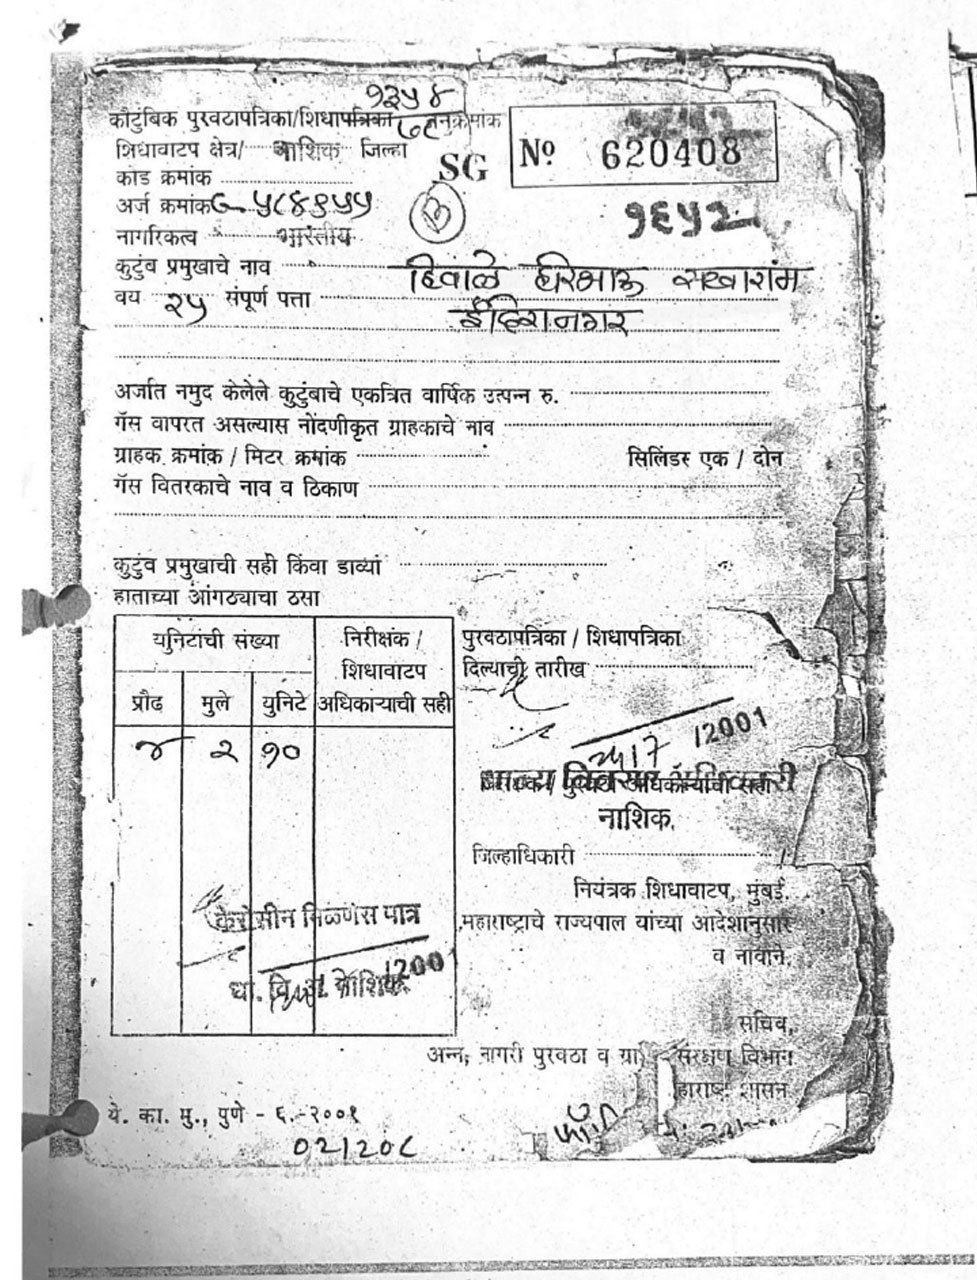 १३५४
कौटुंबिक पुरवठापत्रिका/शिधापत्रिका अनुक्रमांक
शिधावाटप क्षेत्र/ नाशिक जिल्हा
SG Nº 620408
कोड क्रमांक
अर्ज क्रमांक ५८४९५५
१६५२
नागरिकत्व भारतीय
कुटुंब प्रमुखाचे नाव हिवाळे हरिभाऊ सखाराम
वय २५ संपूर्ण पत्ता इंदिरानगर
अर्जात नमुद केलेले कुटुंबाचे एकत्रित वार्षिक उत्पन्न रु.
गॅस वापरत असल्यास नोंदणीकृत ग्राहकाचे नाव
ग्राहक क्रमांक / मिटर क्रमांक सिलिंडर एक / दोन
गॅस वितरकाचे नाव व ठिकाण
कुटुंब प्रमुखाची सही किंवा डाव्यां
हाताच्या आंगठ्याचा ठसा
युनिटांची संख्या
निरीक्षक /
शिधावाटप
अधिकाऱ्याची सही
प्रौढ मुले युनिटे
४ २ १०
पुरवठापत्रिका / शिधापत्रिका
दिल्याची तारीख
/2001
धान्य वितरण अधिकारी
नाशिक.
जिल्हाधिकारी
नियंत्रक शिधावाटप, मुंबई.
महाराष्ट्राचे राज्यपाल यांच्या आदेशानुसार
व नावाने.
केरोसीन मिळणेस पात्र
/2001
धा. वि. अ. नाशिक
सचिव,
अन्न, नागरी पुरवठा व ग्रा संरक्षण विभाग
हाराष्ट्र शासन
ये. का. मु., पुणे - ६.-२००१
02/208